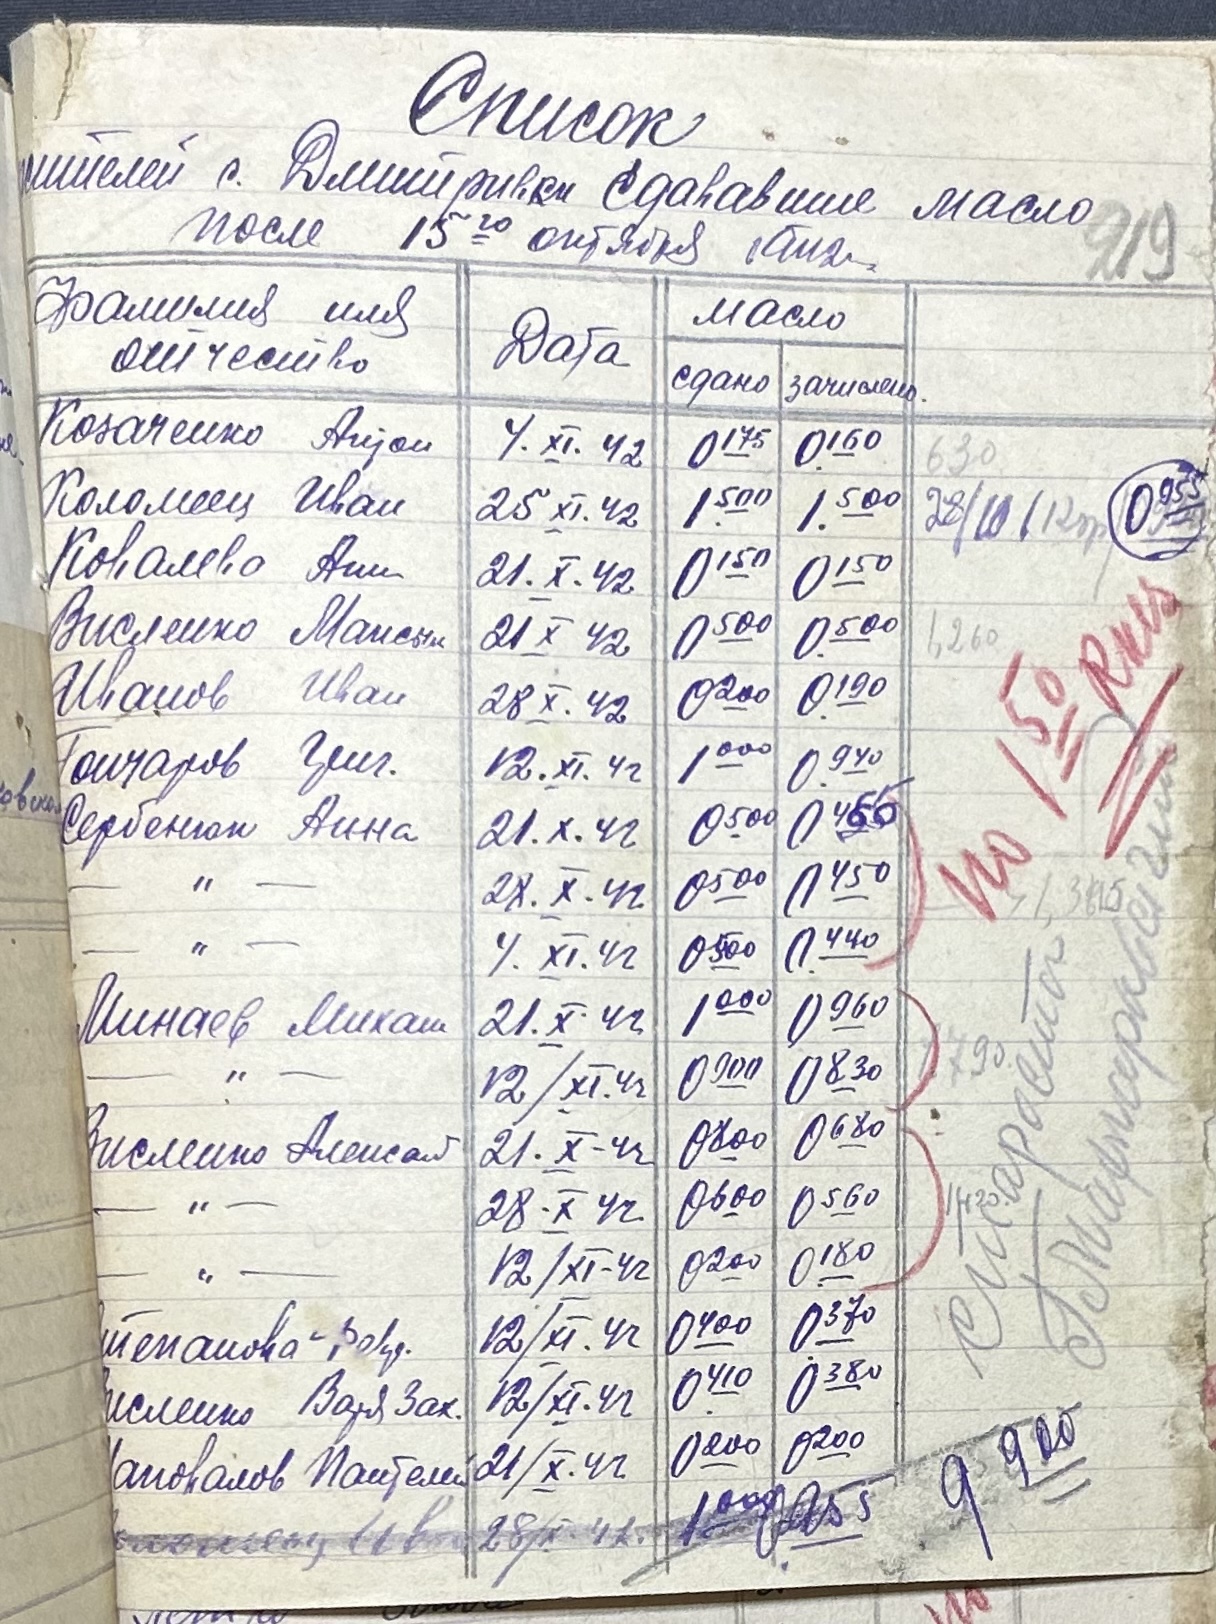 Список
жителей с. Дмитривки сдававшие масло
после 15го октября 1942г.
219
Фамилия имя отчество Дата масло
сдано зачислено.
Козаченко Антон 4. XI. 42 0175 0.160 630
Коломеец Иван 25 XI. 42 1.500 1.500 28/10 0955
Ковалева Анн 21. X. 42 0150 0150
Висленко Максим 21 X 42 0500 0.500 1,260
Иванов Иван 28 X. 42 0200 0.190
Гончаров Григ. 12. XI. 42 1000 0.940
Сербенюк Анна 21. X. 42 0500 0455
— " — 28. X. 42 0500 0450
— " — 4. XI. 42 0500 0.440
Минаев Михаил 21. X. 42 1000 0960 1790
— " — 12/XI. 42 0900 0830
Висленко Алексей 21. X - 42 0800 0680
— " — 28 - X 42 0600 0560 1420
— " — 12/XI - 42 0200 0.180
Степанова 12/XI. 42 0400 0370
Висленко Варя Зах. 12/XI. 42 0410 0380
Шаповалов Пантелей 21/X. 42 0200 0200
Коломеец Ив 28/X. 42. 1000 0955
9 900
по 150
Старостой